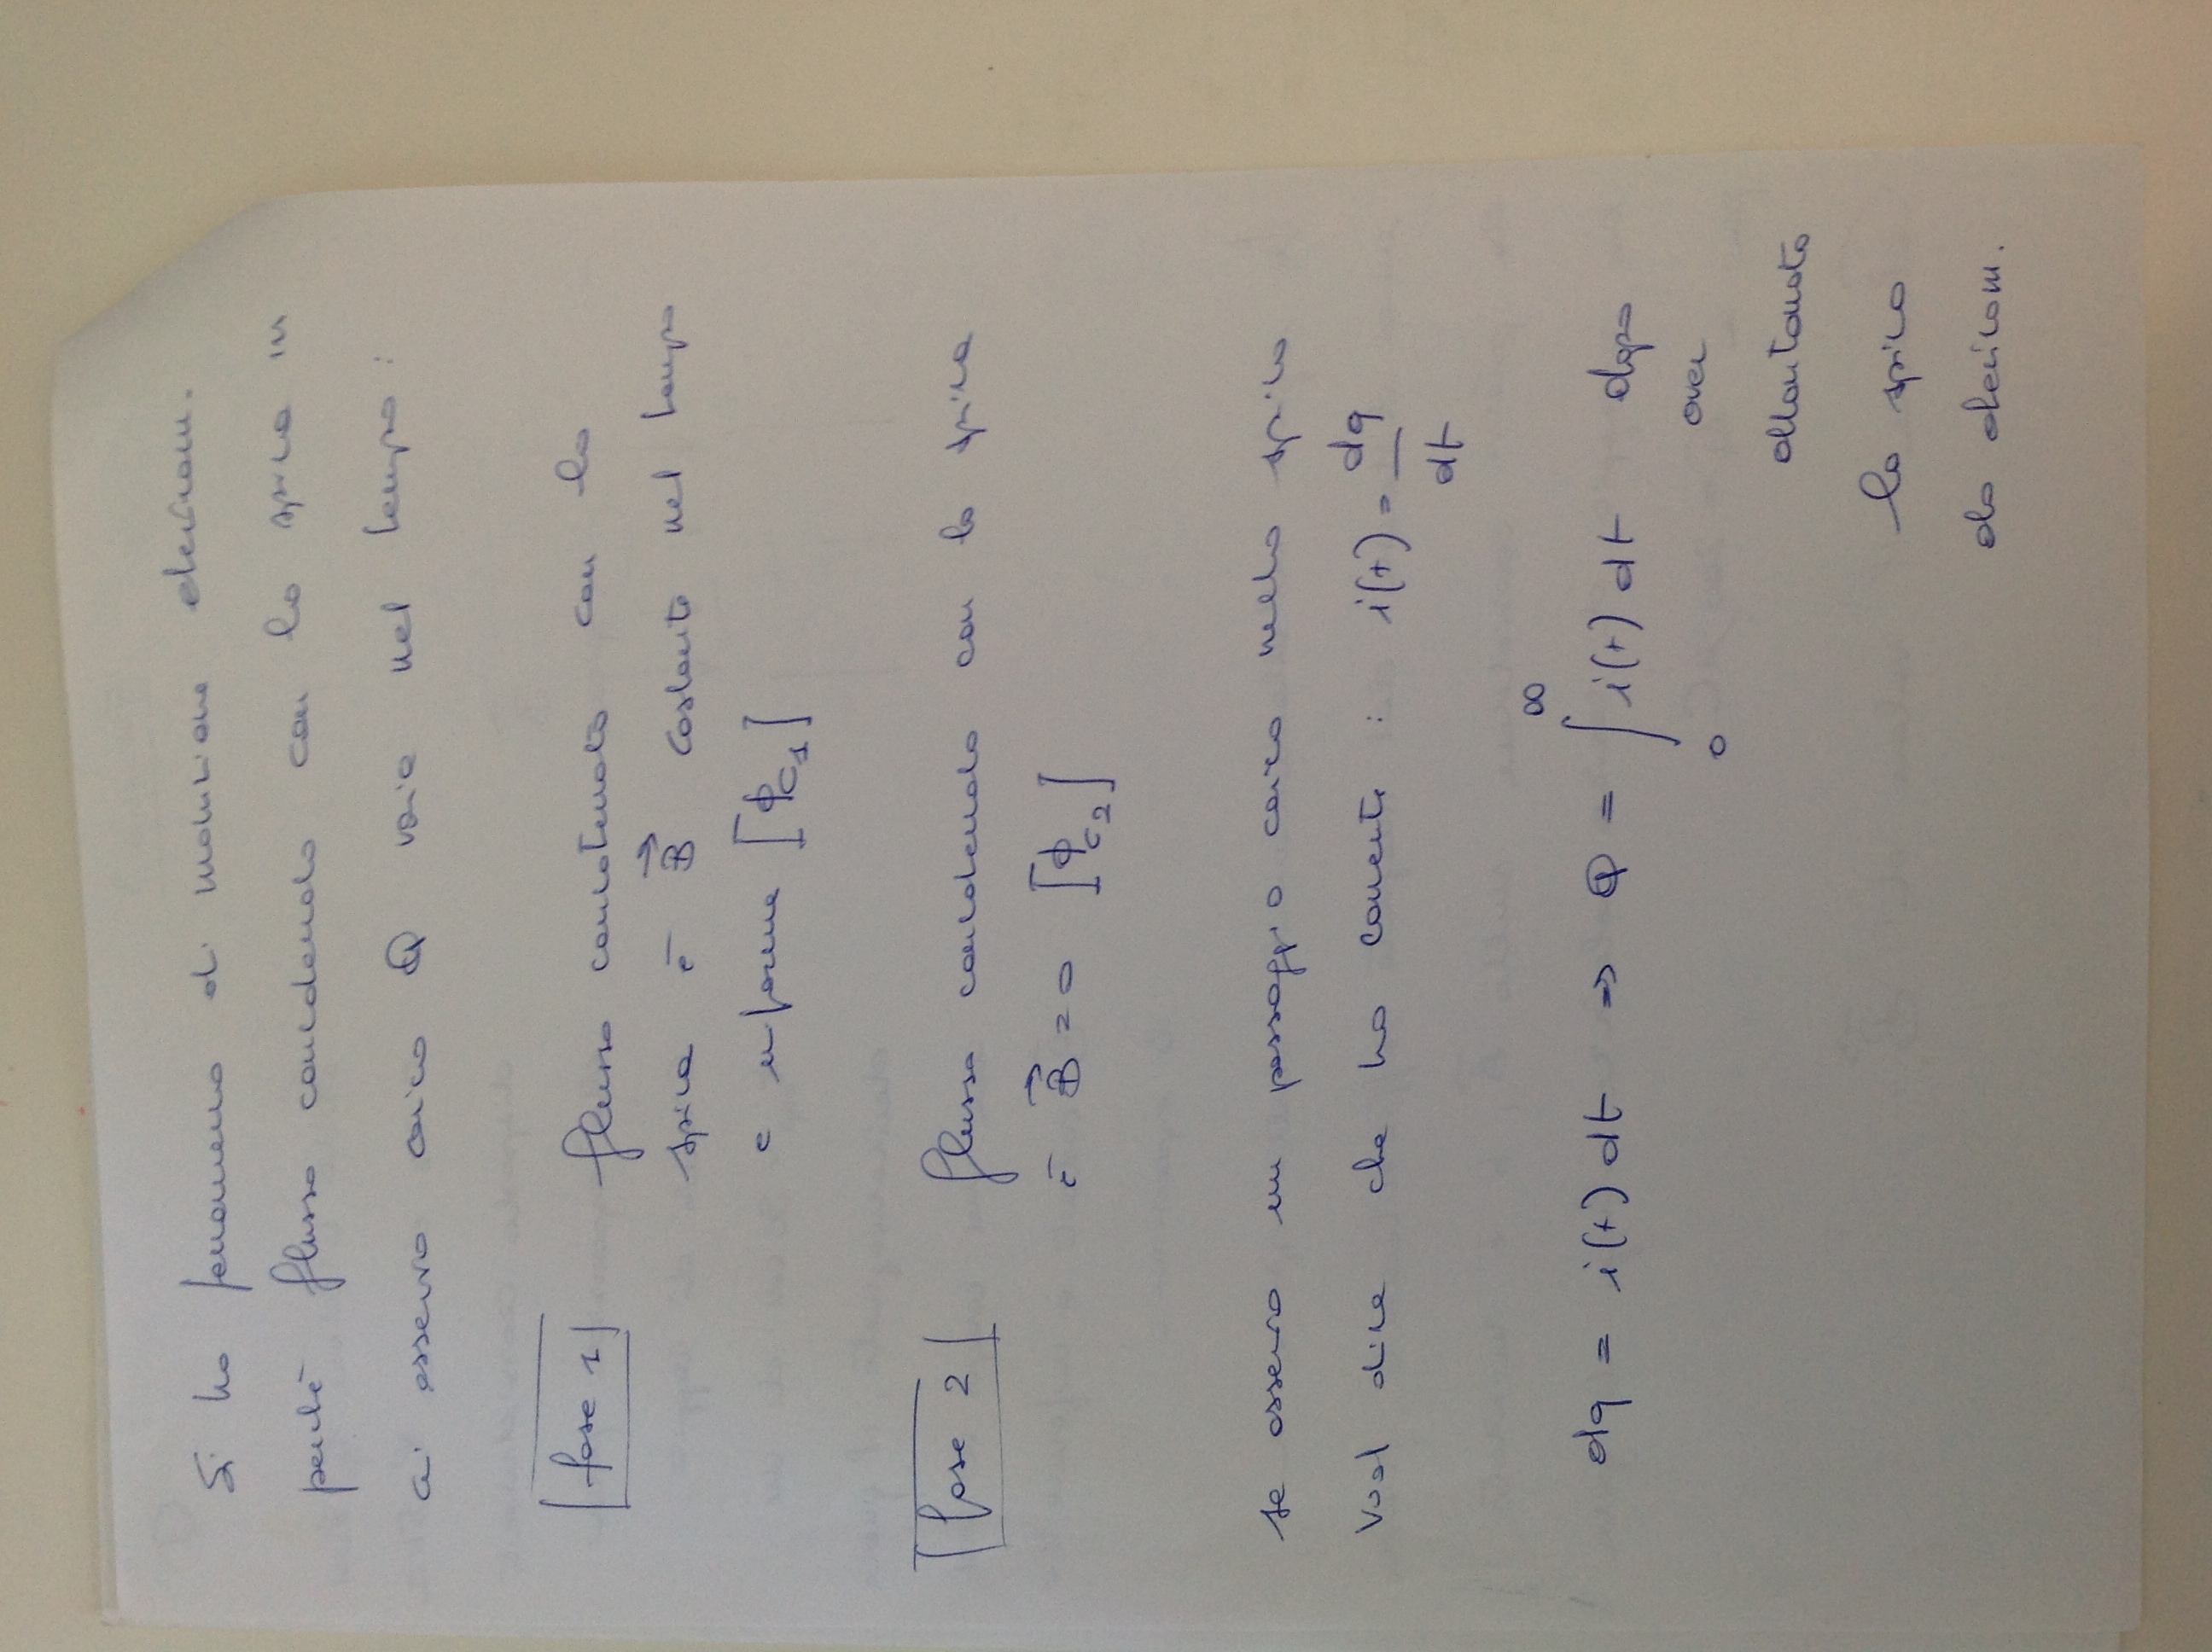 Si ha fenomeno di induzione elettrom.
perché flusso concatenato con la spira in
cui osservo carica Q varia nel tempo :
fase 1 flusso concatenato con la
spira è B⃗ costante nel tempo
e uniforme [ϕc1]
fase 2 flusso concatenato con la spira
è B⃗ = 0 [ϕc2]
se osservo un passaggio carica nella spira
vuol dire che ho corrente : i(t) = dq/dt
dq = i(t) dt ⇒ Q = ∫₀^∞ i(t) dt dopo
aver
allontanato
la spira
da elettrom.